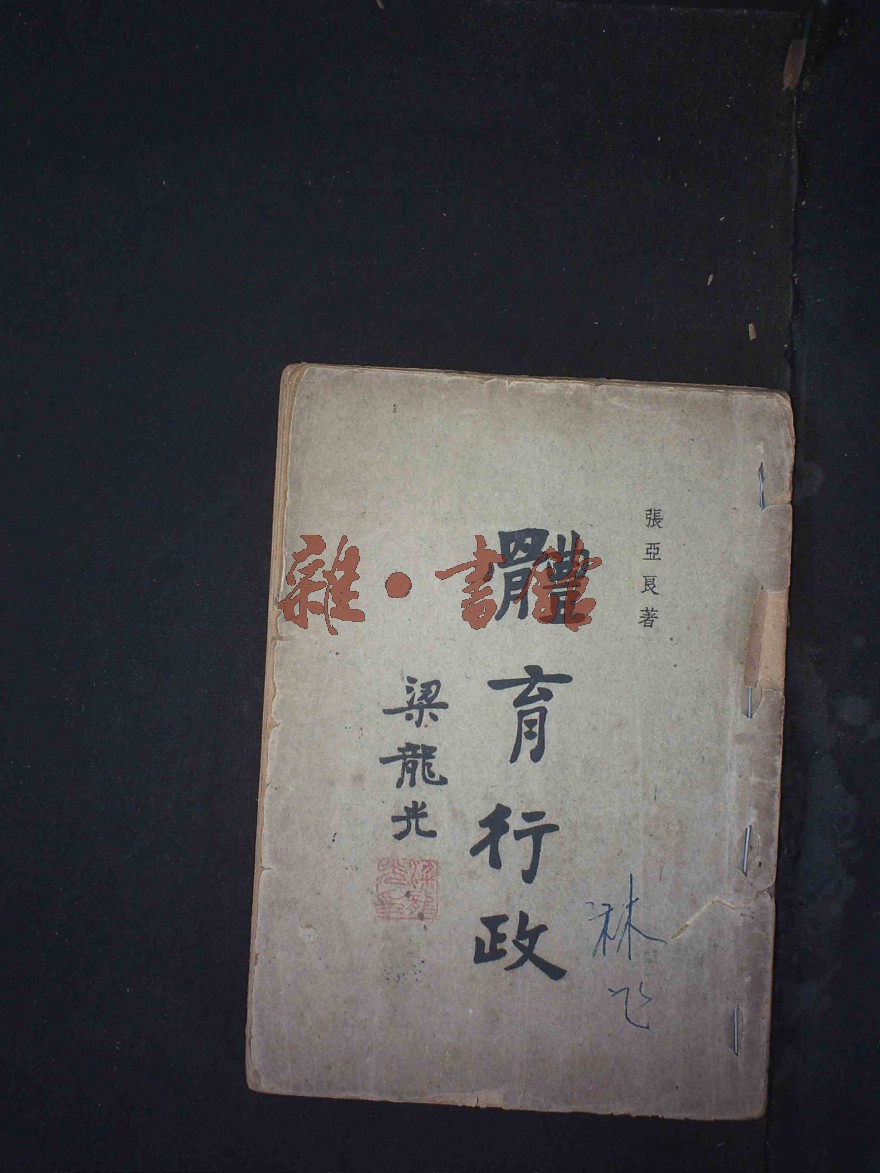 張亞良著
體育行政
梁龍光
雜·書舘
林飞